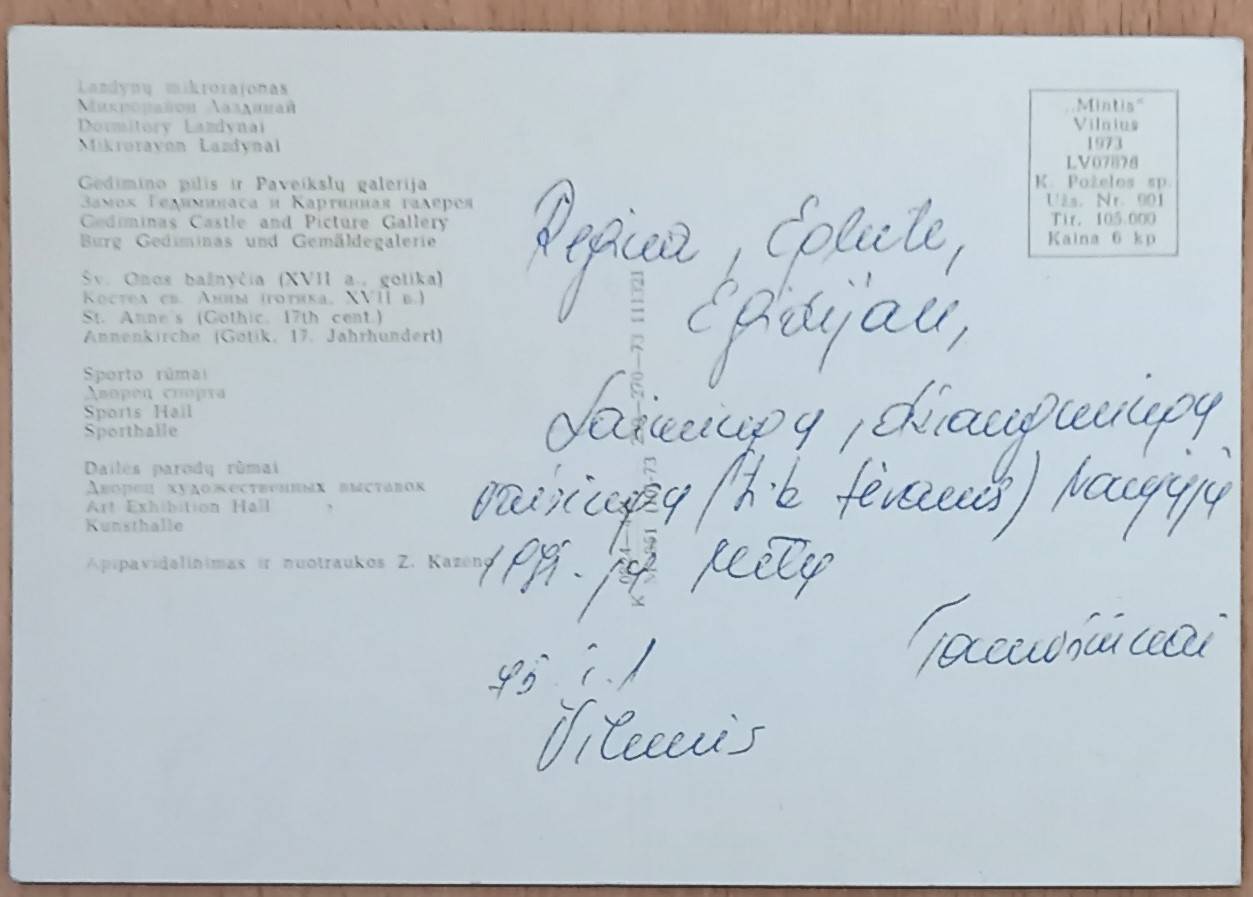 Lazdynų mikrorajonas
Микрорайон Лаздинай
Dormitory Lazdynai
Mikrorayon Lazdynai
Gedimino pilis ir Paveikslų galerija
Замок Гедиминаса и Картинная галерея
Gediminas Castle and Picture Gallery
Burg Gediminas und Gemäldegalerie
Šv. Onos bažnyčia (XVII a., gotika)
Костел св. Анны (готика, XVII в.)
St. Anne's (Gothic, 17th cent.)
Annenkirche (Gotik, 17. Jahrhundert)
Sporto rūmai
Дворец спорта
Sports Hall
Sporthalle
Dailės parodų rūmai
Дворец художественных выставок
Art Exhibition Hall
Kunsthalle
Apipavidalinimas ir nuotraukos Z. Kazėno
„Mintis“
Vilnius
1973
LV07878
K. Poželos sp.
Užs. Nr. 901
Tir. 105.000
Kaina 6 kp
270—73 111321
Regina, Eglute,
Egidijau,
Laimingų, džiaugsmingų
(ž. k. tėvams) Naujųjų
metų
Tamošiūnai
Vilnius